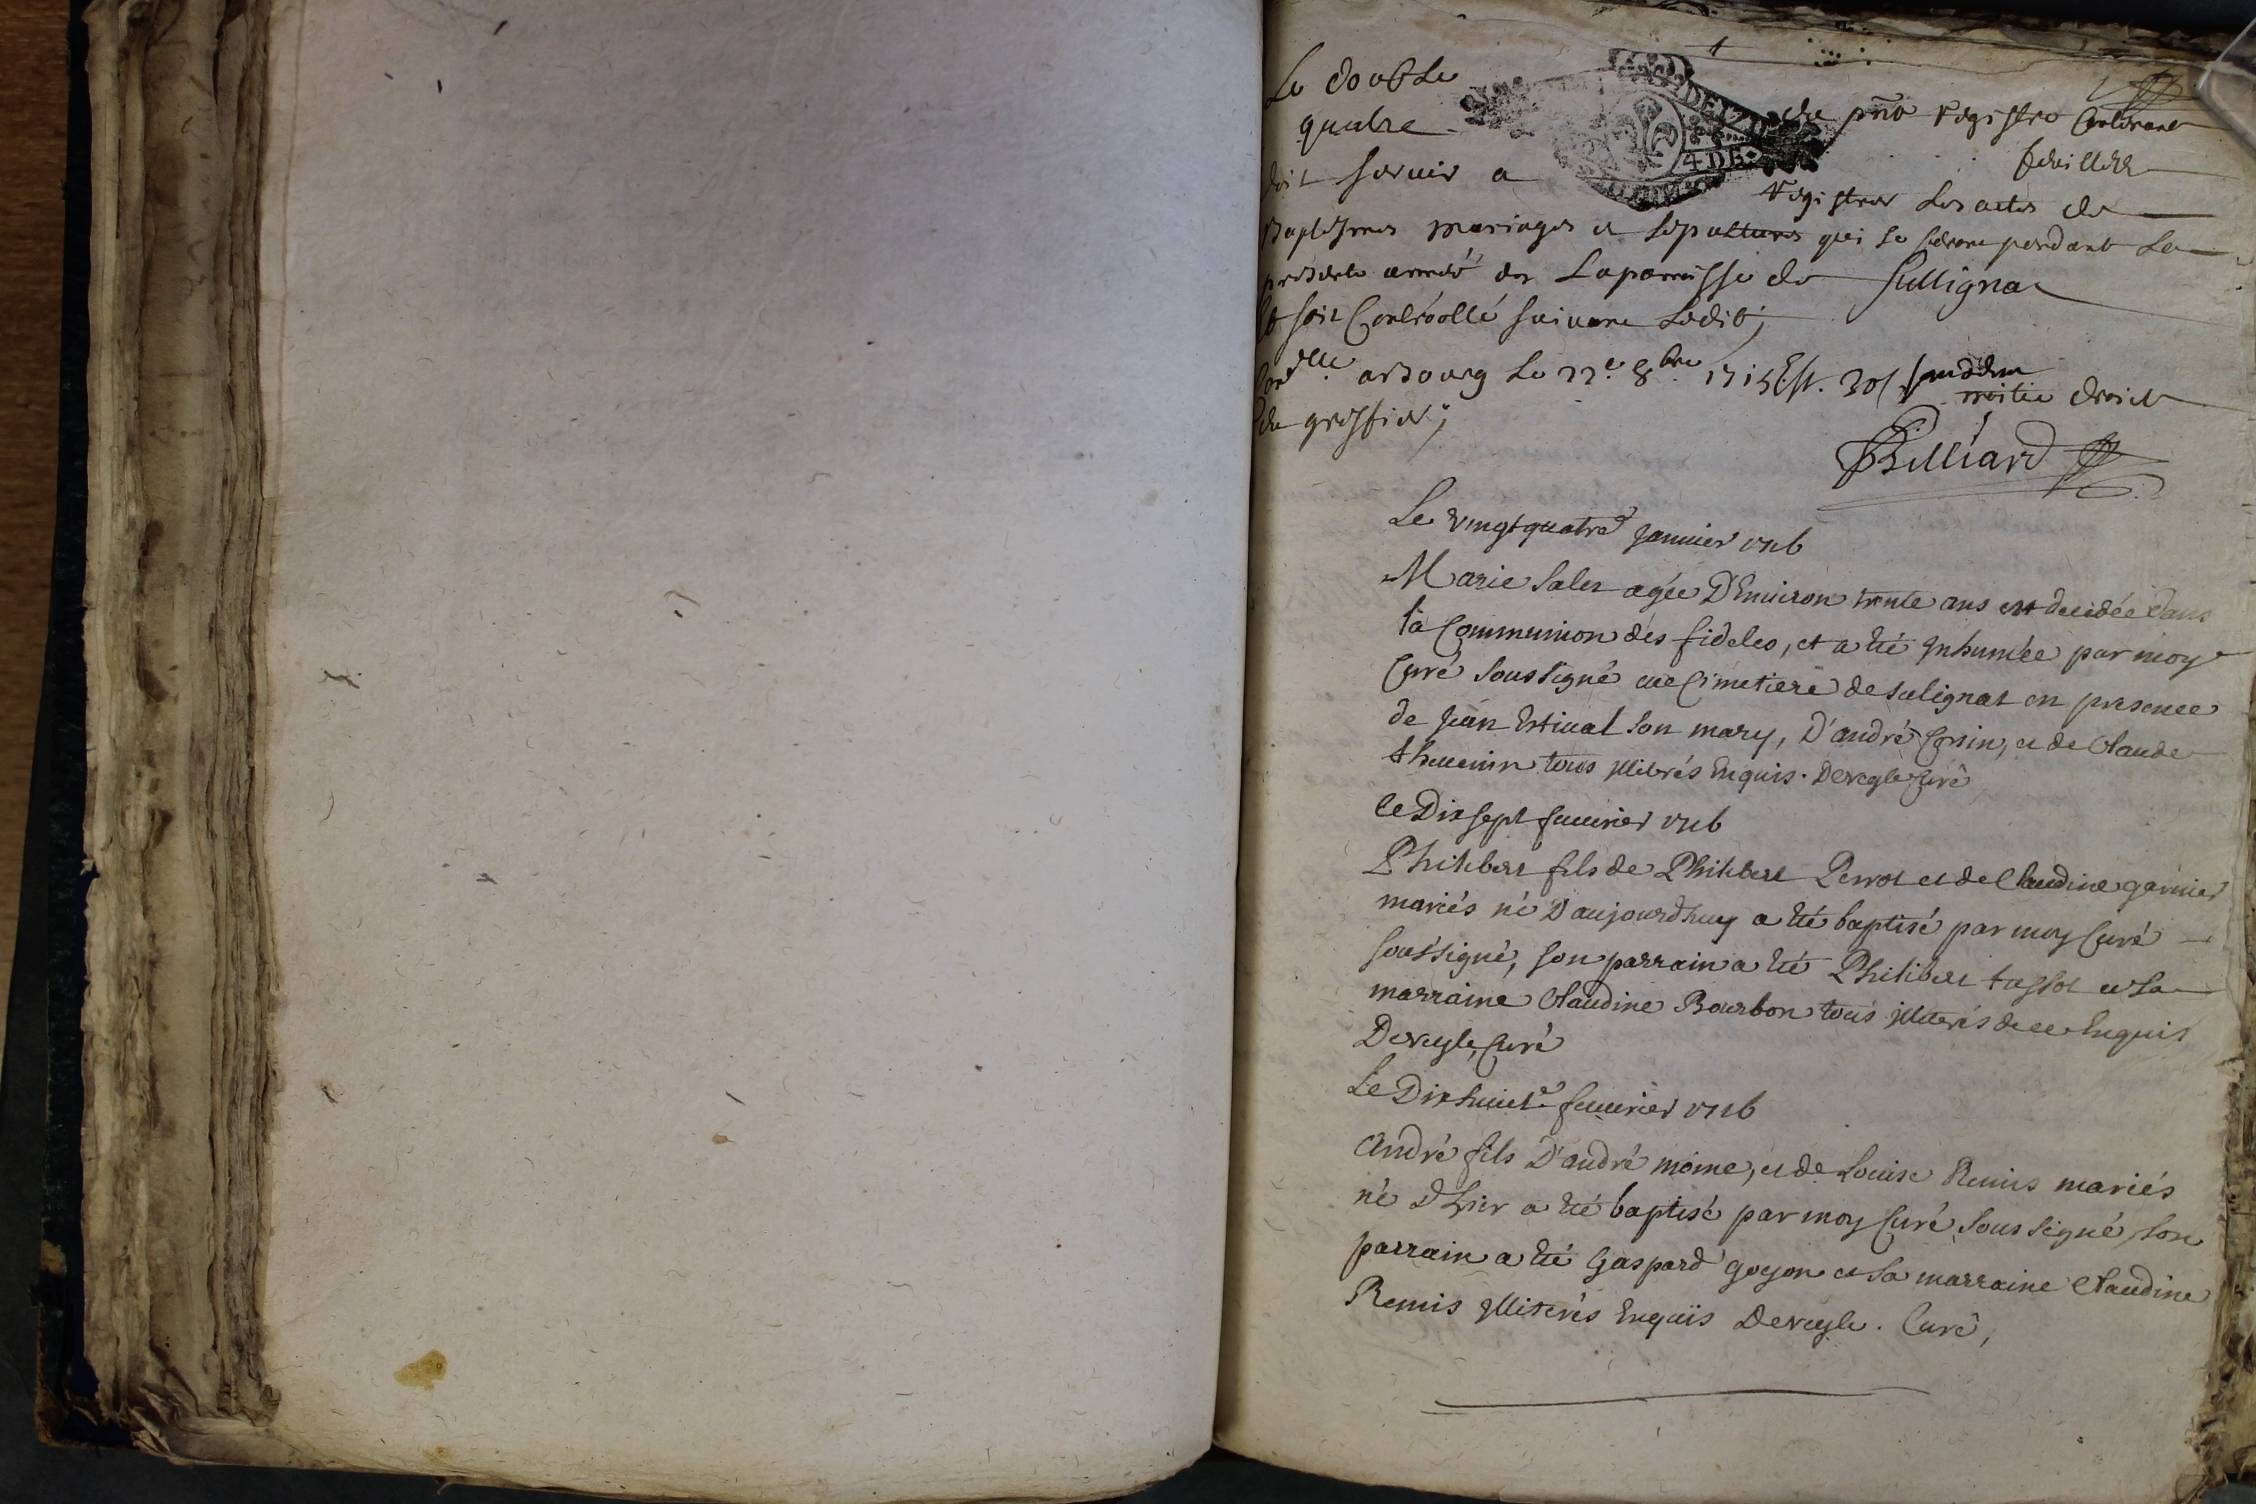 Le double du pnt Registre Contenant
quatre feuillets
doit servir a Registrer Les actes de
Baptesmes mariages et sepultures qui se feront pendant La
presente année en Laparroisse de Sullignat
Et soit Contréollé suivant Ledit;
a Bourg Le 22e 8bre 1715 moitié droict
du greffier;
Billiard
Le vingt quatre Janvier 1716
Marie Sales agée D'Environ trente ans est decedée dans
la Communion des fideles, et a été Inhumée par moy
Curé soussigné au Cimetiere de sulignat en presence
de Jean Estival son mary, D'andré Cosin, et de Claude
thevenin tous illiterés Enquis. Deveyle Curé
le Dix sept fevrier 1716
Philibert fils de Philibert Perrot et de Claudine garnier
mariés né D'aujourdhuy a été baptisé par moy Curé
soussigné, son parrain a été Philibert tassot et sa
marraine Claudine Bourbon tous illiterés de ce Enquis
Deveyle Curé
Le Dix huict fevrier 1716
André fils D'andré moine, et de Louise Remis mariés
né D'hier a été baptisé par moy Curé soussigné, son
parrain a été Gaspard goyon et sa marraine Claudine
Remis illiterés Enquis Deveyle. Curé,